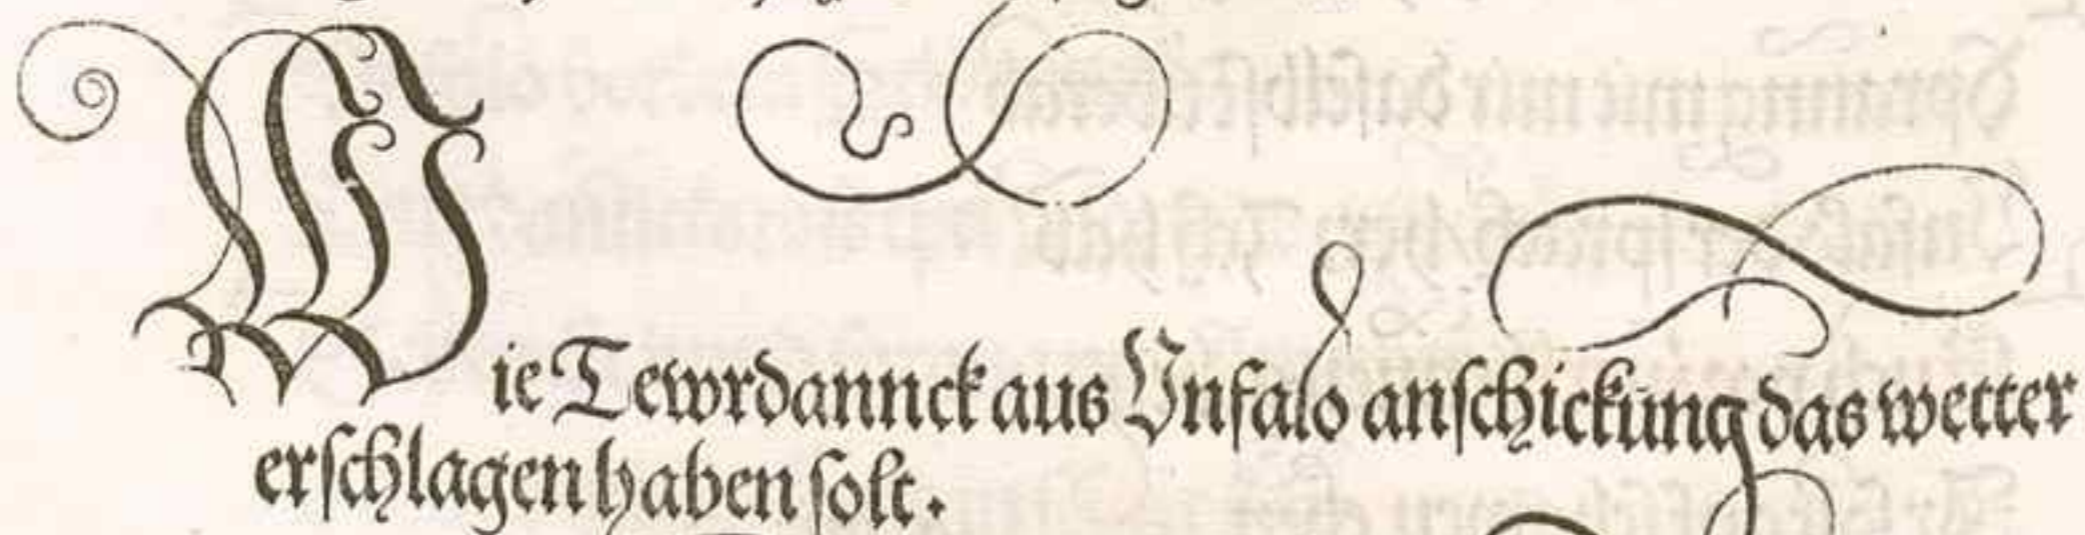 Wie Tewrdannck aus Vnfalo anſchickŭng das wetter
erſchlagen haben ſolt.